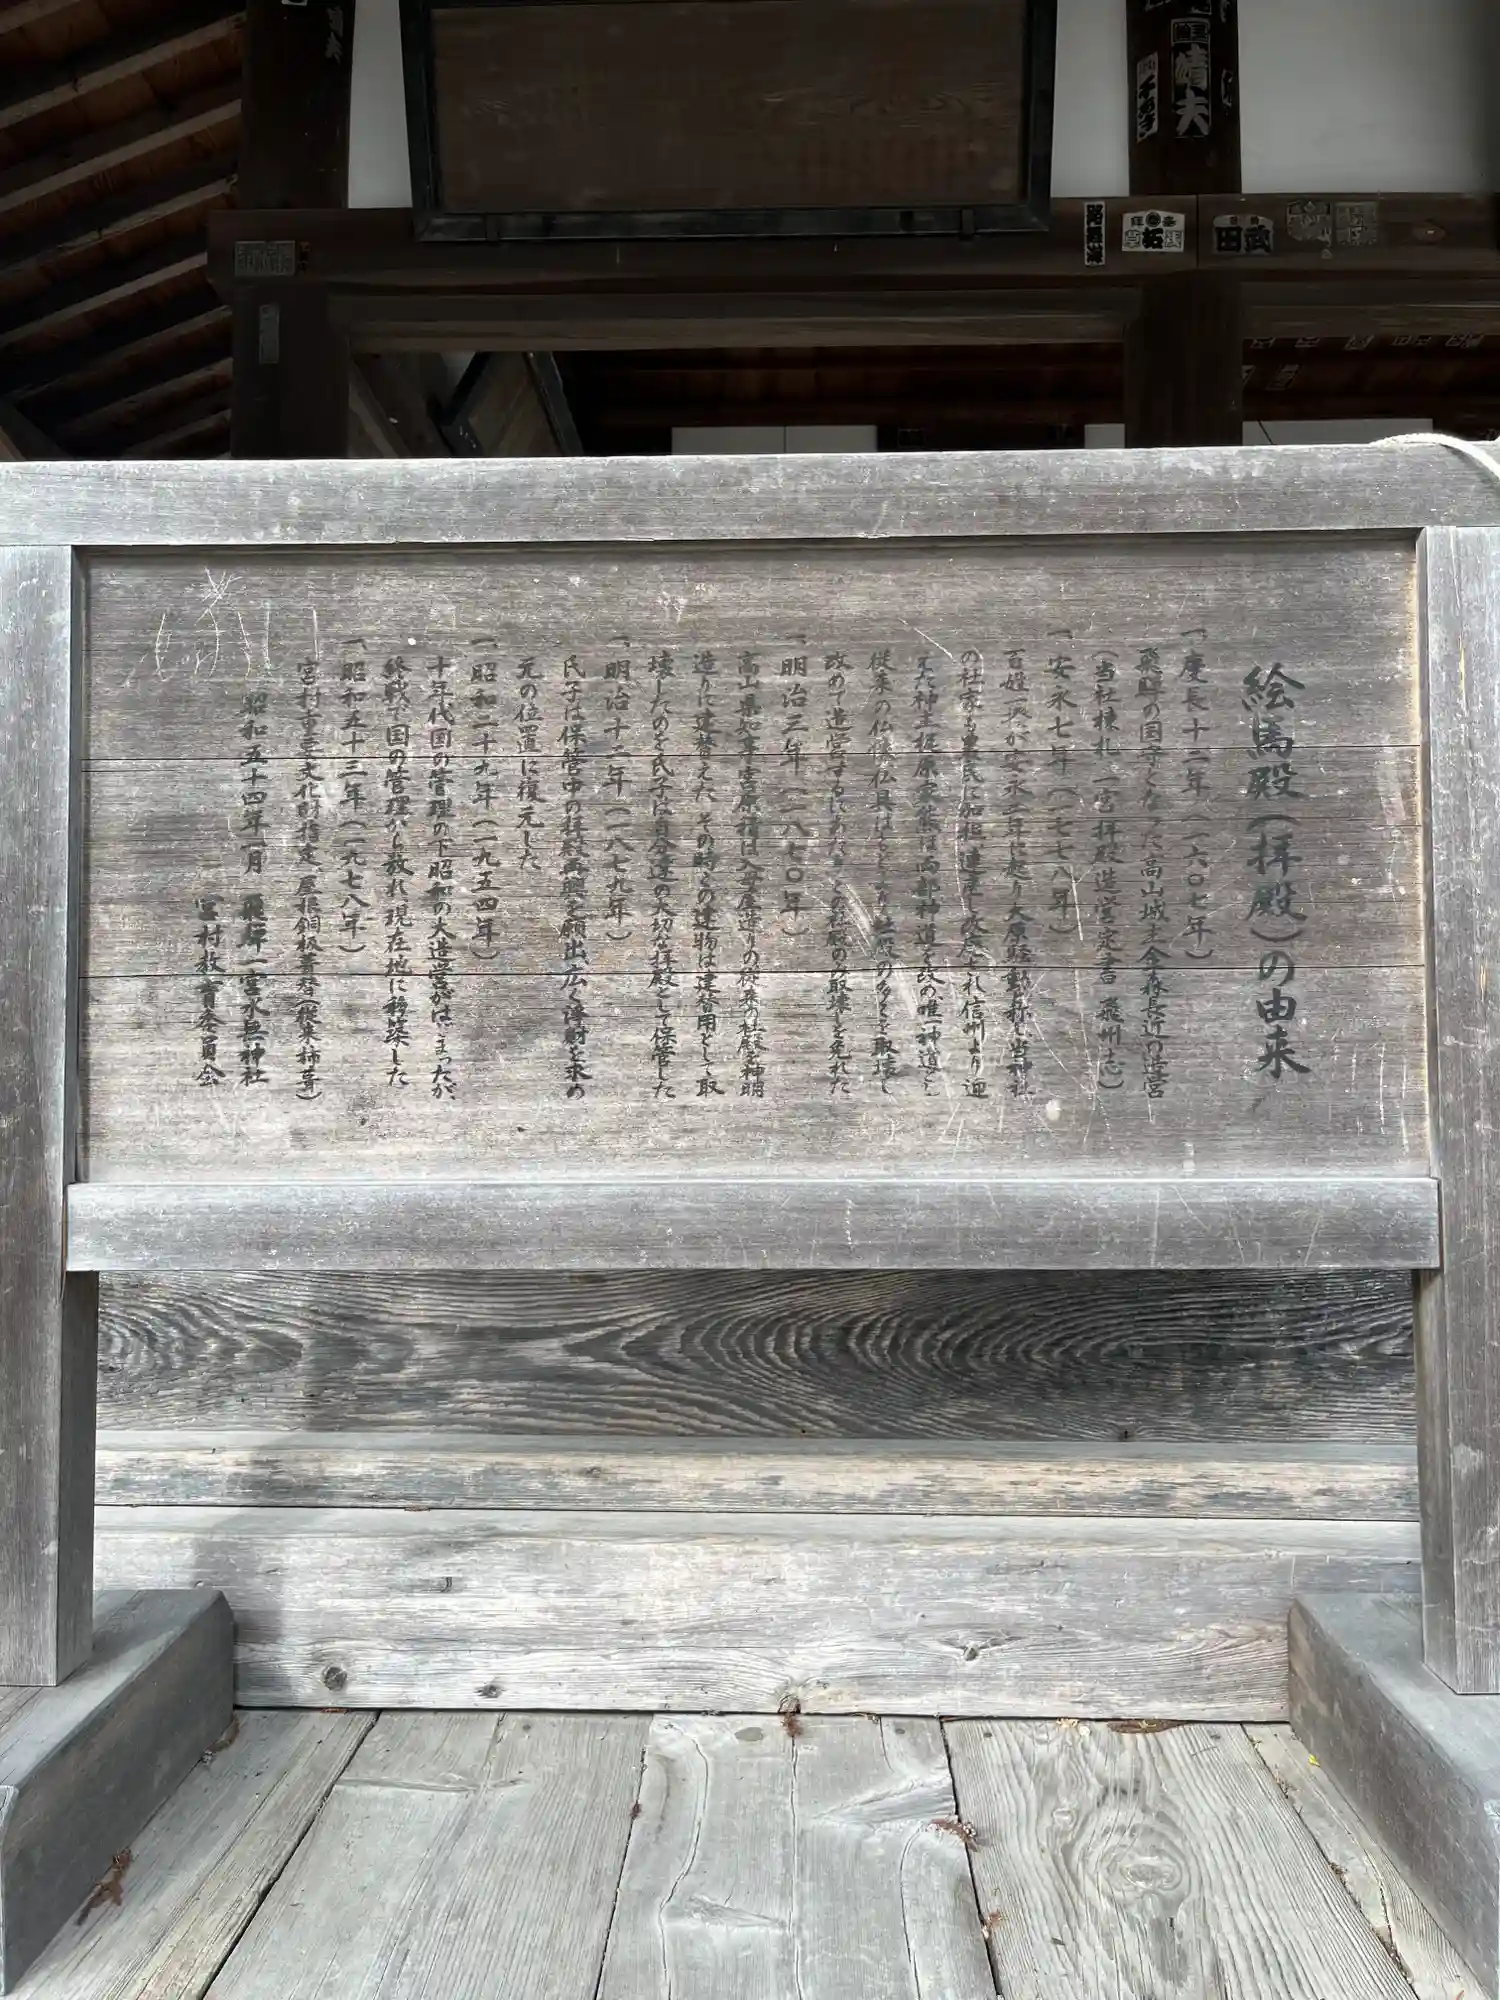 絵馬殿(拝殿)の由来
一、慶長十二年(一六〇七年)
飛騨の国守となった高山城主金森長近の造営
(当社棟札、一宮拝殿造営定書 飛州志)
一、安永七年(一七七八年)
百姓一揆が安永二年に起り大原騒動と称し当神社
の社家も農民に加担連座し改廃され信州より迎
えた神主梶原家熊は両部神道を改め唯一神道とし
従来の仏像仏具はもとより社殿の多くを取壊し
改めて造営するにあたりこの社殿のみ取壊しを免れた
一、明治三年(一八七〇年)
高山県知事宮原積は入母屋造りの従来の社殿を神明
造りに建替えた その時この建物は建替用として取
壊したのを氏子は自分達の大切な拝殿として保管した
一、明治十二年(一八七九年)
氏子は保管中の拝殿再興を願出、広く浄財を求め
元の位置に復元した
一、昭和二十九年(一九五四年)
十年代国の管理の下昭和の大造営がはじまったが、
終戦で国の管理から放れ現在地に移築した
一、昭和五十三年(一九七八年)
宮村重要文化財指定 屋根銅板葺替(従来柿葺)
昭和五十四年一月 飛騨一宮水無神社
宮村教育委員会
清夫
拓
武田